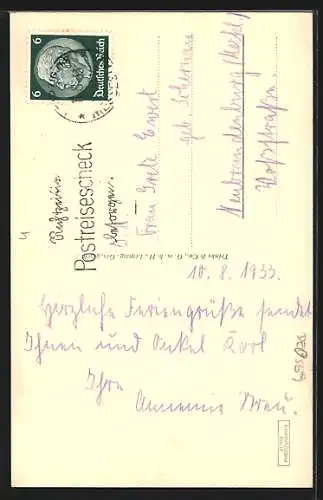 6 Deutsches Reich 6
Rechtzeitig
Postreisescheck
besorgen.
Frau Grete Ewert
geb.
Neubrandenburg (Meckl)
Trinks & Co., G. m. b. H., Leipzig
10. 8. 1933.
Herzliche Feriengrüße sendet
Ihnen und Onkel Karl
Ihre
Annemie